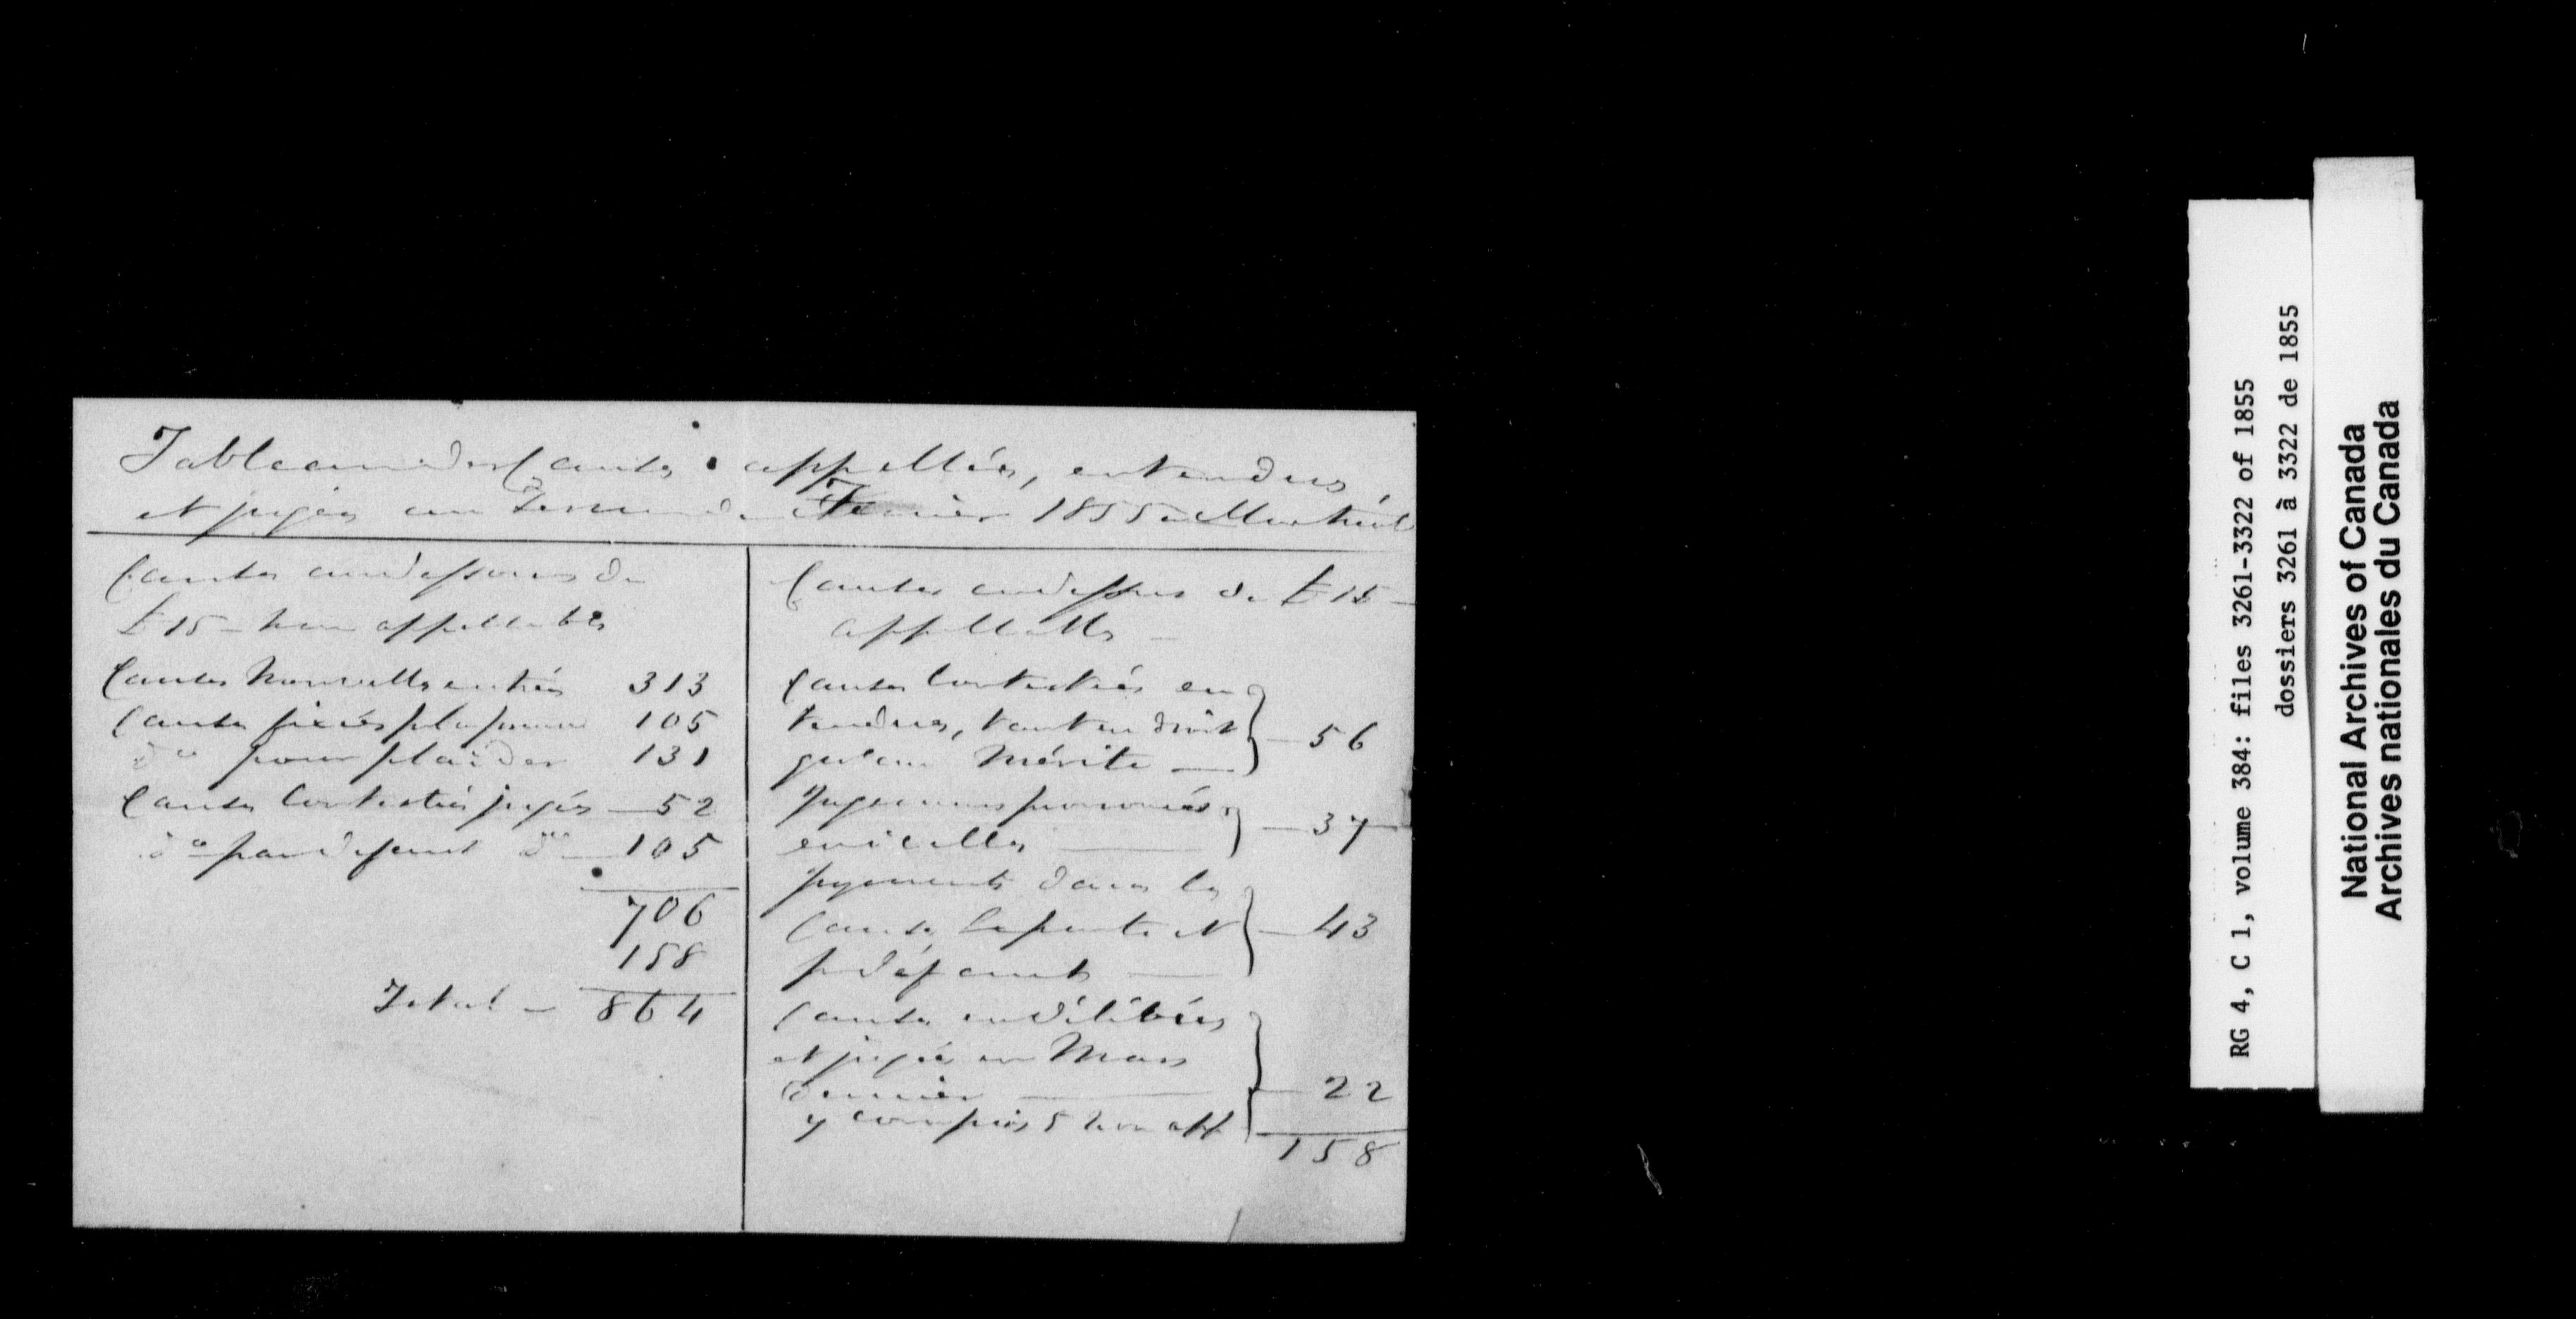 Tableau des Causes appellées, entendues,
et jugées au Terme de Fevrier 1855 à Montréal
Causes audessous de
£15 – non appellables
Causes Nouvelles entrées 313
Causes fixées pour 105
do pour plaider 131
Causes Contestées jugées — 52
do par defaut do — 105
706
158
Total — 864
Causes audessus de £15 —
appellables —
Causes Contestées en
tendues, tant en droit
qu'au Mérite — 56
Jugemens prononcés
en icelles — 37
jugements dans les
Causes Exparte et
p défaut — 43
Causes en délibérés
et jugées en Mars
dernier — 22
y compris 5 non app
158
RG 4, C 1, volume 384: files 3261-3322 of 1855
dossiers 3261 à 3322 de 1855
National Archives of Canada
Archives nationales du Canada